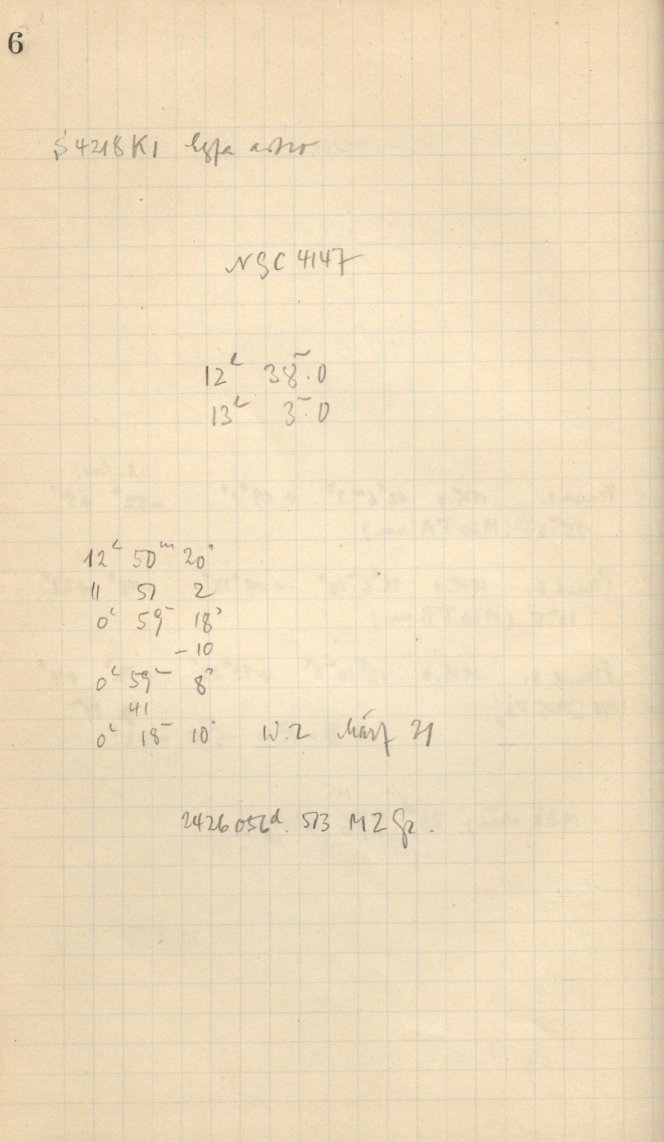 6
S 4218 K1 Agfa astro
NGC 4147
12ʰ 38ᵐ.0
13ʰ 3ᵐ.0
12ʰ 50ᵐ 20ˢ
11 51 2
0ʰ 59ᵐ 18ˢ
-10
0ʰ 59ᵐ 8ˢ
41
0ʰ 18ᵐ 10ˢ W.Z März 21
2426056ᵈ. 513 MZ Gr.